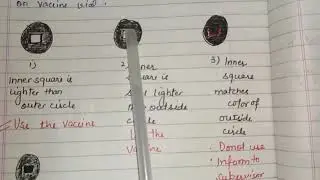 on vaccine vial.
1)
Inner square is
lighter than
outer circle
Use the vaccine
2) Inner
square is
lighter
outside
circle
the
vaccine
3) Inner
square
matches
color of
outside
circle
• Do not use
• Inform to
supervisor